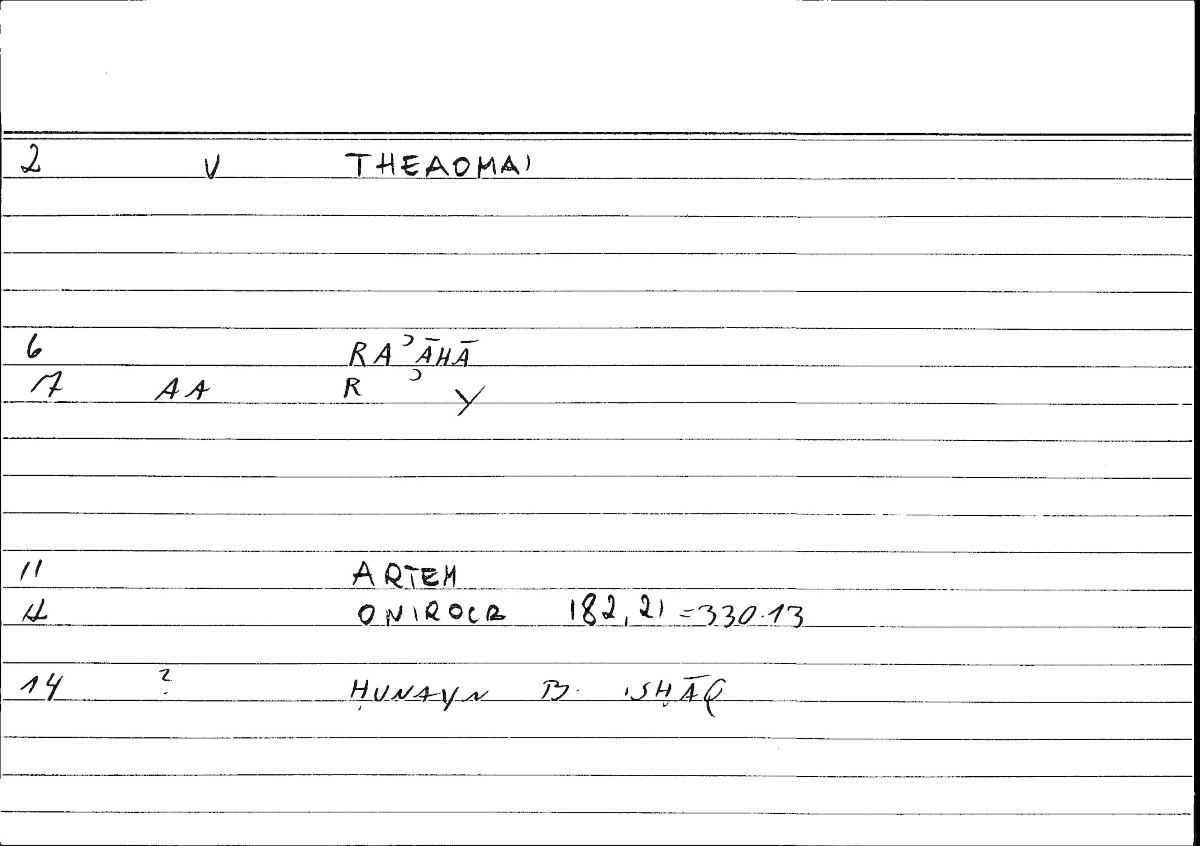 2 V THEAOMAI
6 RAʾĀHĀ
7 AA R ʾ Y
11 ARTEM
12 ONIROCR 182,21 =330.13
14 ? ḤUNAYN B. ISḤĀQ